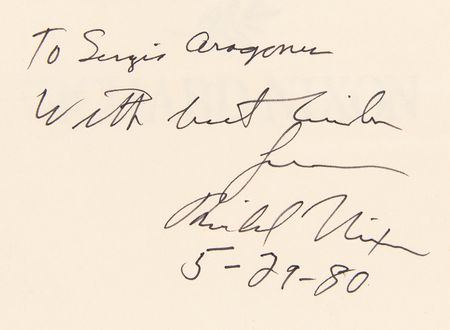 To Sergio Aragones
With best wishes
from
Richard Nixon
5-29-80